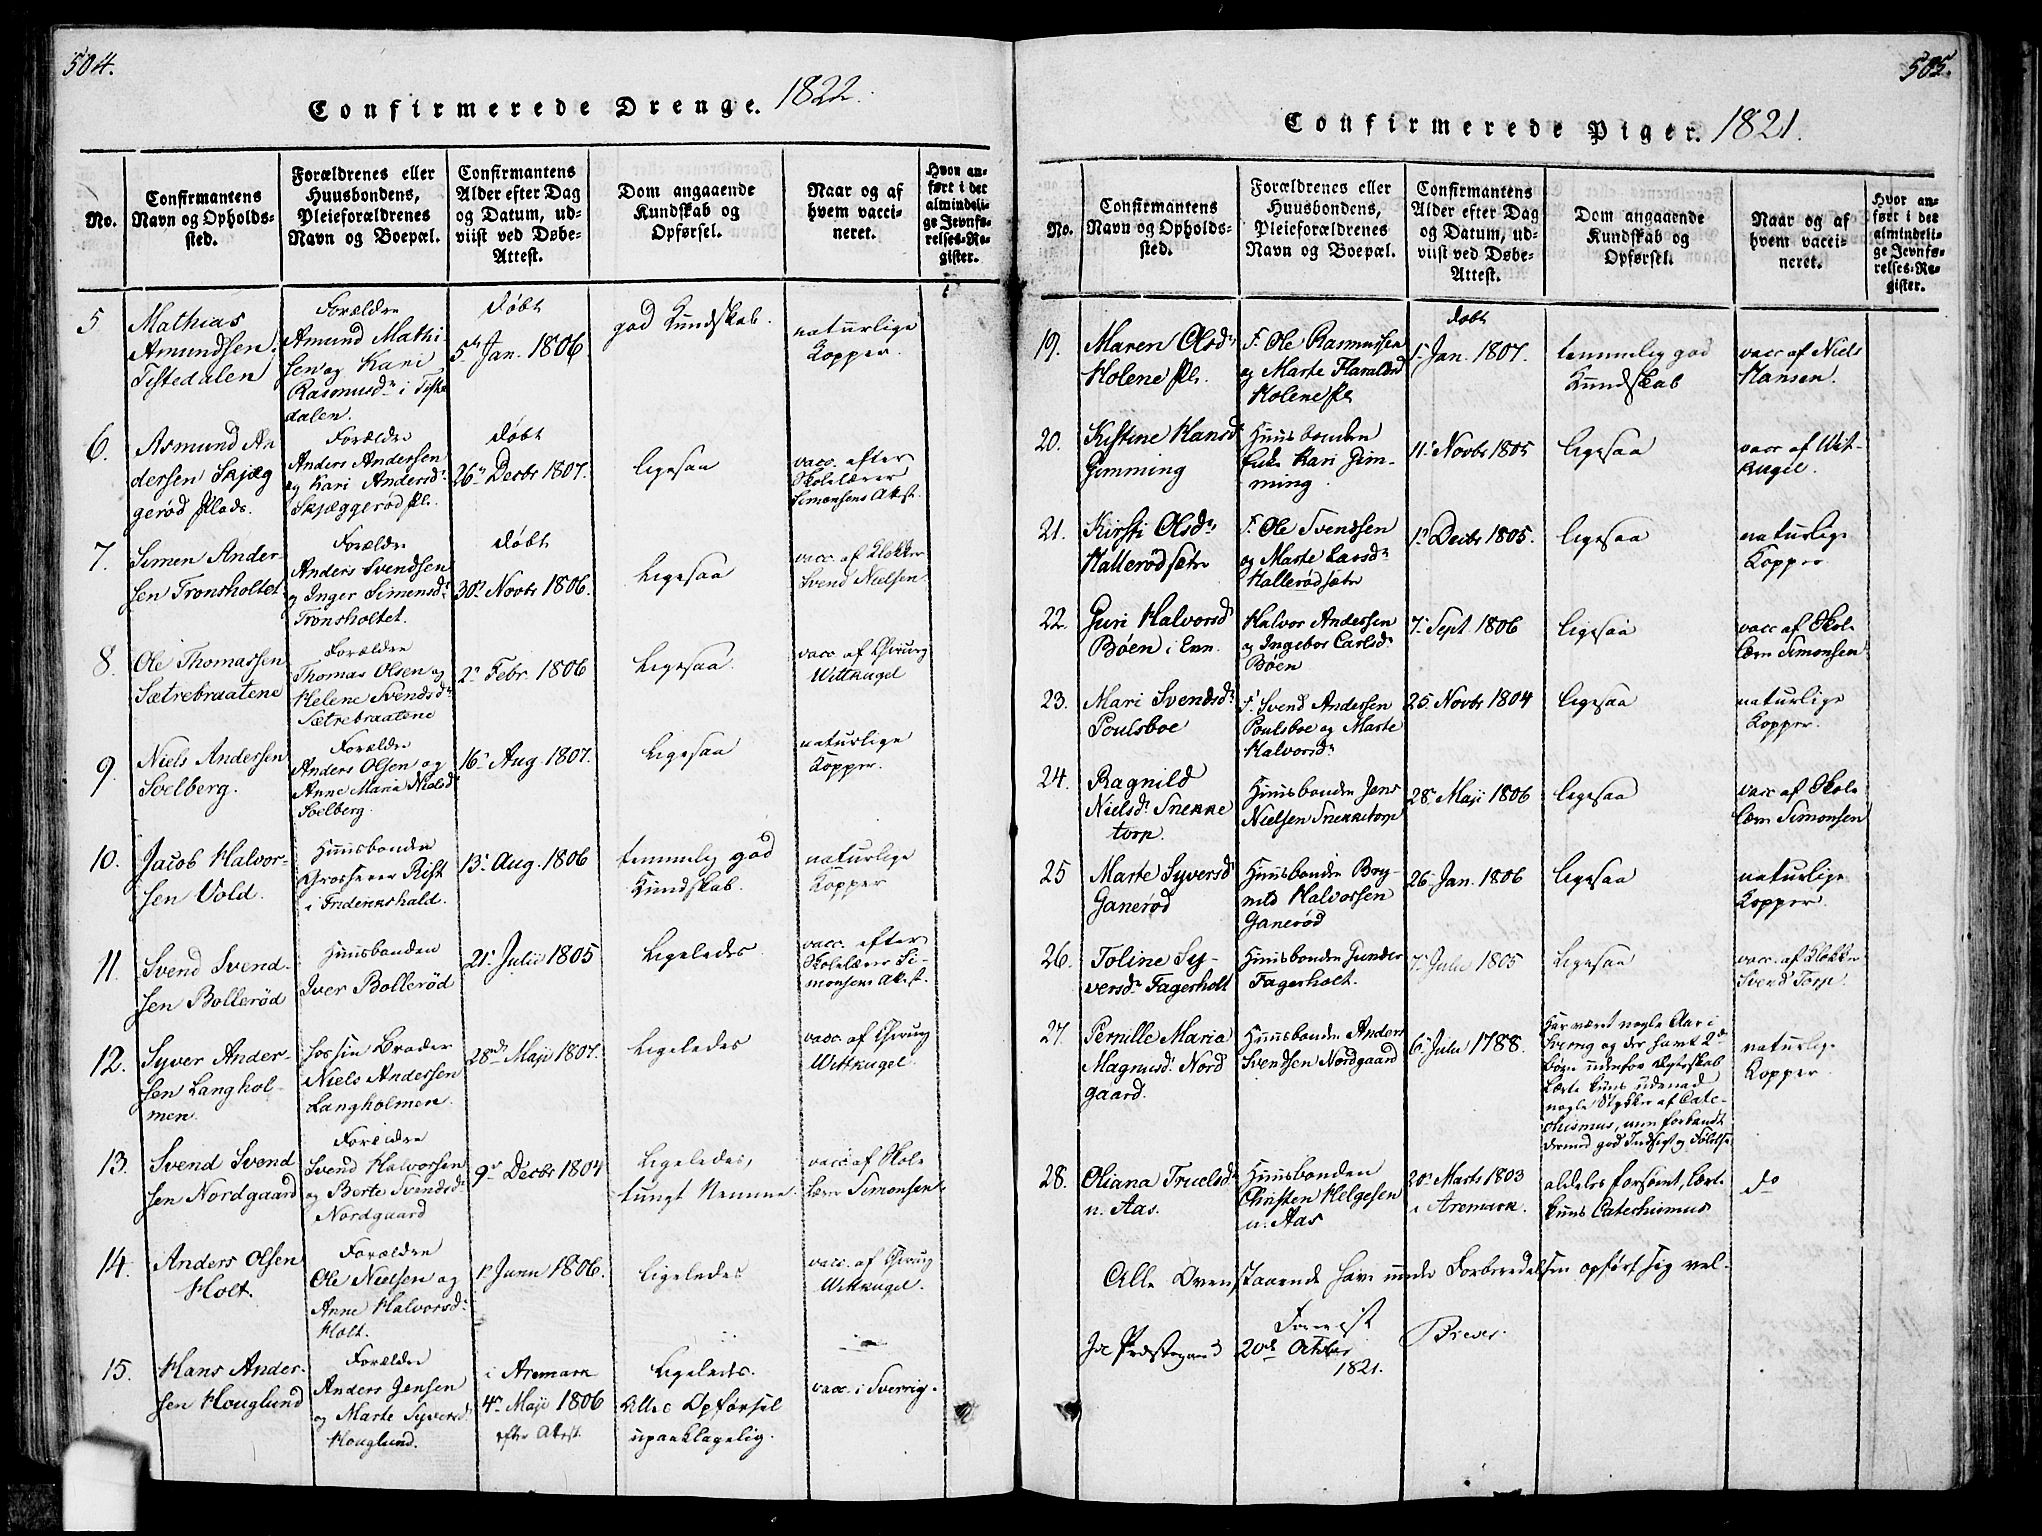 504.
Confirmerede Drenge. 1822.
No.
Confirmantens
Navn og Opholds-
sted.
Forældrenes eller
Huusbondens,
Pleieforældrenes
Navn og Boepæl.
Confirmantens
Alder efter Dag
og Datum, ud-
viist ved Døbe-
Attest.
Dom angaaende
Kundskab og
Opførsel.
Naar og af
hvem vacci-
neret.
Hvor an-
ført i det
almindeli-
ge Jevnfø-
relses-Re-
gister.
5
Mathias
Amundsen
Tistedalen
Forældre
Amund Mathi-
sen og Kari
Rasmusdr i Tiste
dalen.
døbt
5te Jan. 1806.
god Kundskab.
naturlige
Kopper.
6.
Asmund An
dersen Skjæg
gerød Plads.
Forældre
Anders Andersen
og Kari Andersdr
Skjæggerød Pl.
døbt
26de Decbr 1807.
ligesaa
vacc. efter
Skolelærer
Simonsens Attest.
7.
Simen Ander-
sen Tronsholtet
Forældre
Anders Svendsen
og Inger Simensdr
Tronsholtet.
døbt
30te Novbr 1806.
Ligesaa
vacc. af Klokker
Svend Nielsen
8.
Ole Thomassen
Sætrebraatene
Forældre
Thomas Olsen og
Helene Svendsdr
Sætrebraatene
2de Febr. 1806
Ligesaa
vacc. af Chirurg
Wittkugel
9.
Niels Andersen
Soelberg.
Forældre
Anders Olsen og
Anne Maria Nielsdr
Soelberg.
16de Aug. 1807.
Ligesaa
naturlige
Kopper.
10.
Jacob Halvor-
sen Vold.
Huusbonde
Grosserer Rist
i Friderikshald.
13de Aug. 1806
temmelig god
Kundskab.
naturlige
Kopper
11.
Svend Svend-
sen Bollerød
Huusbonden
Iver Bollerød
21de Julii 1805
Ligeledes
vacc. efter
Skolelærer Si-
monsens Attest.
12.
Syver Ander-
sen Langhol-
men.
hos sin Broder
Niels Andersen
Langholmen.
28nde Maji 1807.
Ligeledes
vacc. af Chirurg
Wittkugel.
13.
Svend Svend
sen Nordgaard
Forældre
Svend Halvorsen
og Berte Svendsdr
Nordgaard
9de Decbr 1804
Ligeledes,
tungt Nemme.
vacc. af Skole
lærer Simonsen
14.
Anders Olsen
Holt.
Forældre
Ole Nielsen og
Anne Halvorsdr
Holt.
1ste Junii 1806.
Ligeledes
vacc. af Chirurg
Wittkugel.
15.
Hans Ander-
sen Houglund
Forældre
Anders Jensen
og Marte Syversdr
Houglund.
i Aremark
4de Maji 1806
efter Attest.
Ligeledes.
Alles Opførsel
upaaklagelig.
vacc. i Sverrig.
505.
Confirmerede Piger. 1821.
No.
Confirmantens
Navn og Opholds-
sted.
Forældrenes eller
Huusbondens,
Pleieforældrenes
Navn og Boepæl.
Confirmantens
Alder efter Dag
og Datum, ud-
viist ved Døbe-
Attest.
Dom angaaende
Kundskab og
Opførsel.
Naar og af
hvem vacci-
neret.
Hvor an-
ført i det
almindeli-
ge Jevnfø-
relses-Re-
gister.
19.
Maren Olsdr
Holene Pl.
F. Ole Rasmussen
og Marte Haraldsdr
Holene Pl.
døbt
1ste Jan. 1807.
temmelig god
Kundskab
vacc af Niels
Hansen.
20.
Kistine Hansdr
Gimming
Huusbonden
Enke Kari Gim-
ming.
11te Novbr 1805
ligesaa
vacc af Wit-
kugel.
21.
Kirsti Olsdr
Hallerødsætr
F. Ole Svendsen
og Marte Larsdr
Hallerødsætr
1ste Decbr 1805.
ligesaa
naturlige
Kopper
22.
Guri Halvorsdr
Bøen i Enn.
Halvor Andersen
og Ingebor Carlsdr
Bøen
7de Sept. 1806
ligesaa
vacc af Skol-
lærr Simonsen
23.
Mari Svendsdr
Poulsboe
F. Svend Andersen
Poulsboe og Marte
Halvorsdr
25de Novbr 1804
ligesaa
naturlige
Kopper.
24.
Ragnild
Nielsdr Snekke
torp.
Huusbonde Jens
Nielsen Snekketorp
28de Maji 1806
ligesaa
vacc af Skole
lærr Simonsen
25
Marte Syversdr
Ganerød
Huusbonde Bry-
nild Halvorsen
Ganerød
26de Jan. 1806
ligesaa
naturlige
Kopper.
26.
Toline Sy-
versdr Fagerholt
Huusbonden Gunder
Fagerholt.
7de Julii 1805
ligesaa
vacc. af Klokker
Svend Torp.
27.
Pernille Maria
Magnusdr Nord
gaard.
Huusbonden Anders
Svendsen Nordgaard
6te Julii 1788.
Har været nogle Aar i
Sverrig og der havt 2de
Børn udenfor Ægteskab
Lærte kuns udenad
nogle Stykker af Cate-
chismus, men forbandt
dermed god Indsigt og Følelse
naturlige
Kopper.
28.
Oliana Truelsdr
n. Aas.
Huusbonden
Christen Helgesen
n. Aas
20de Marts 1803
i Aremark.
aldeles forsømt, lærte
kuns Catechismus
do
Alle Ovenstaaende have under Forberedelsen opført sig vel.
Id Præstegaard 20de October
1821.